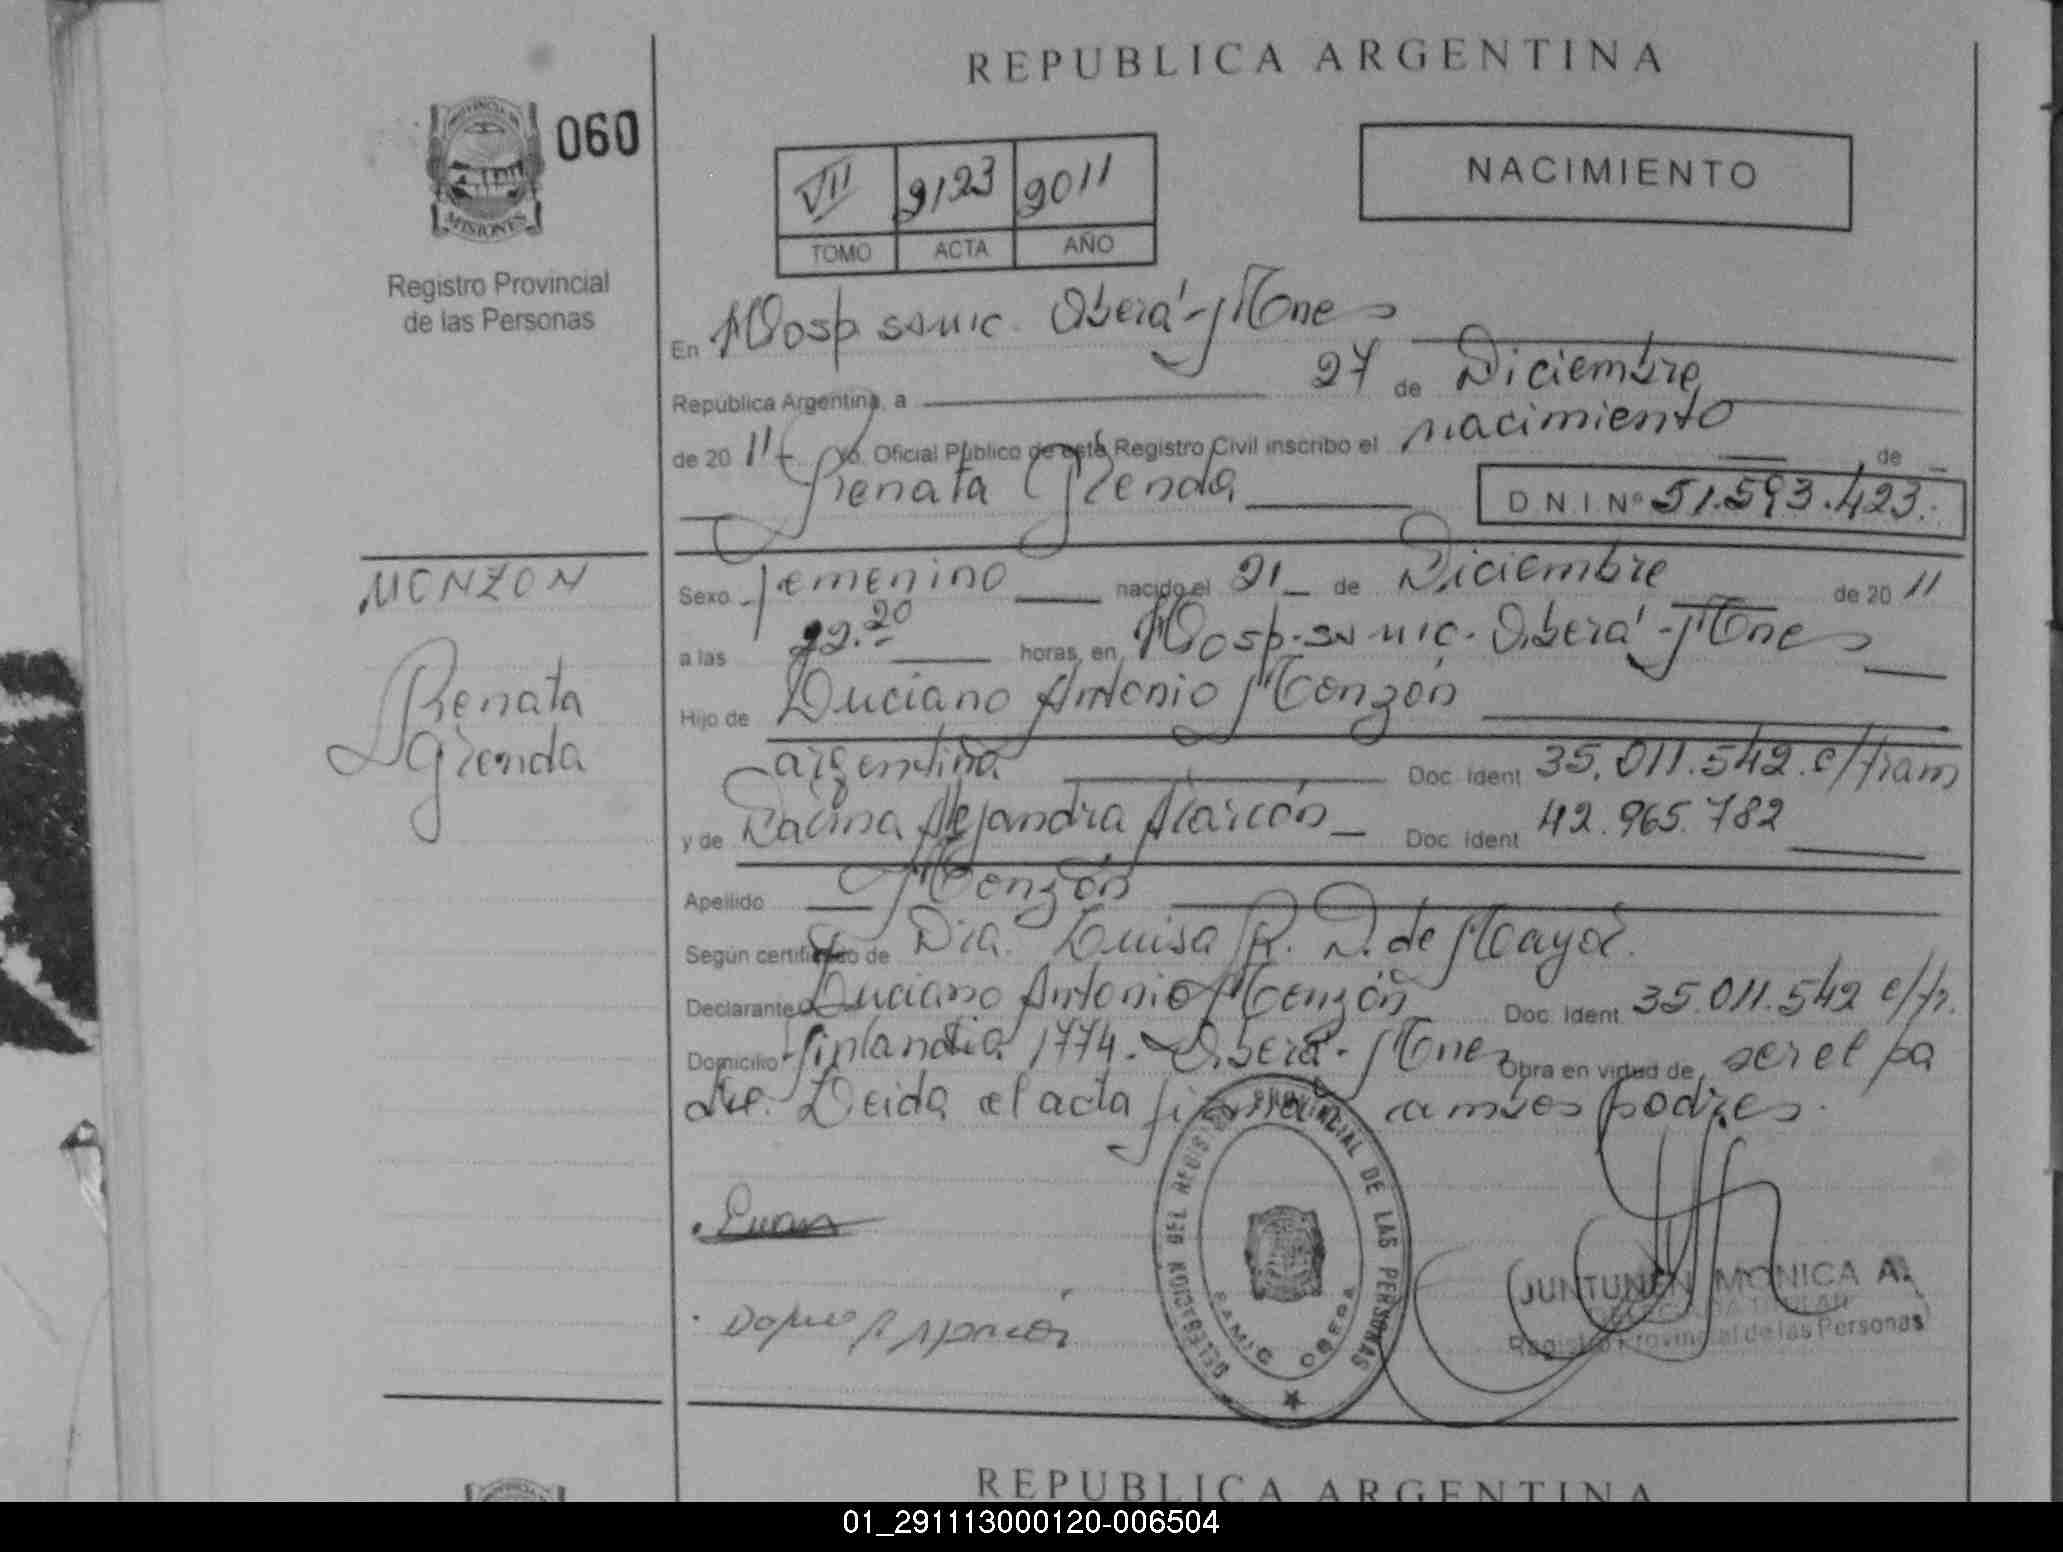 REPUBLICA ARGENTINA
PROVINCIA DE
MISIONES
060
Registro Provincial
de las Personas
VII 2123 2011
TOMO ACTA AÑO
NACIMIENTO
En Hosp samic. Oberá - Mnes
República Argentina, a 27 de Diciembre
de 2011 Yo, Oficial Público de este Registro Civil inscribo el nacimiento de
Renata Glenda
D N I Nº 51.593.423.
MONZON
Renata
Glenda
Sexo femenino nacido el 21 de Diciembre de 2011
a las 22.20 horas, en Hosp. samic. Oberá - Mnes
Hijo de Luciano Antonio Monzón
argentina Doc. Ident 35.011.542. c/tram
y de Alejandra Alarcón Doc. Ident 42.965.782
Apellido Monzón
Según certificado de Dra. Luisa R. D. de Mayol.
Declarante Luciano Antonio Monzón Doc. Ident. 35.011.542 c/tr.
Domicilio Finlandia 1774. Oberá - Mnes Obra en virtud de ser el pa
dre. Leida el acta firman ambos padres.
DELEGACION DEL REGISTRO PROVINCIAL DE LAS PERSONAS
SAMIC OBERA
JUNTUNEN MONICA A.
DELEGADA TITULAR
Registro Provincial de las Personas
REPUBLICA ARGENTINA
01_291113000120-006504